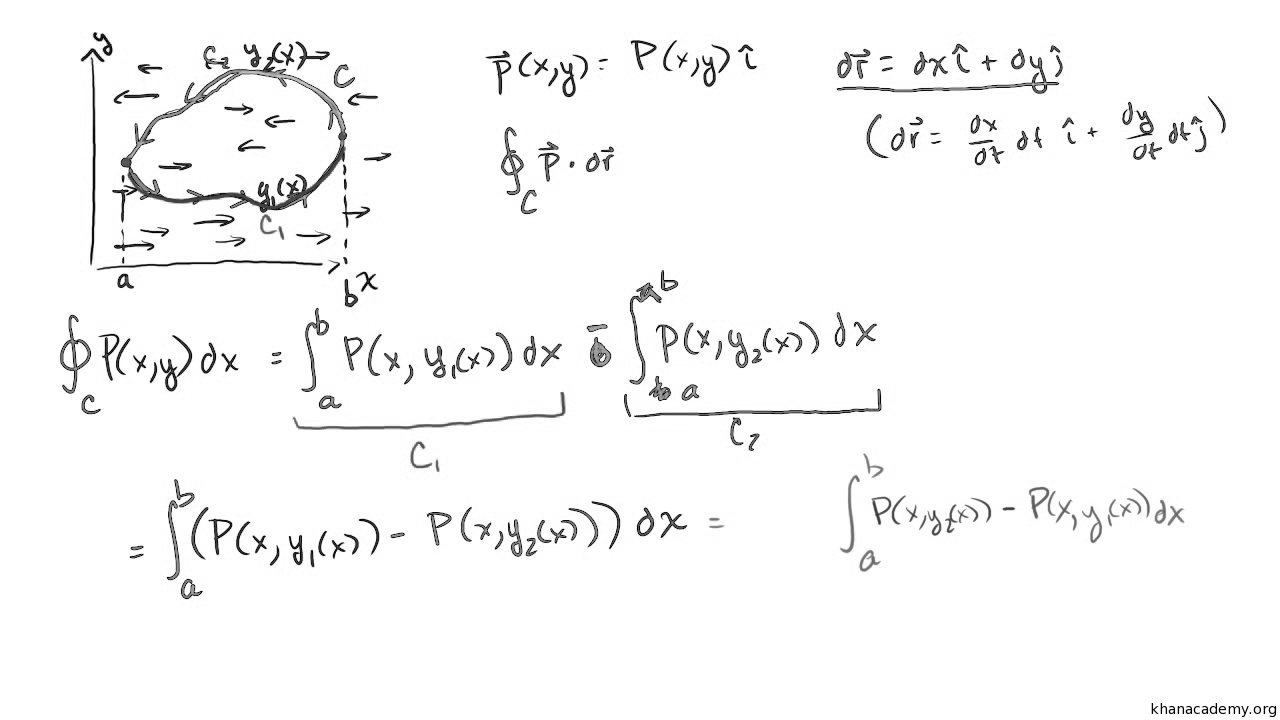 y
C₂ y₂(x)
C
y₁(x)
C₁
a
b x
P⃗(x,y) = P(x,y) î
∮_C P⃗ · dr⃗
dr⃗ = dx î + dy ĵ
(dr⃗ = dx/dt dt î + dy/dt dt ĵ)
∮_C P(x,y) dx = ∫_a^b P(x, y₁(x)) dx − ∫_a^b P(x, y₂(x)) dx
C₁ C₂
= ∫_a^b (P(x, y₁(x)) − P(x, y₂(x))) dx = ∫_a^b P(x, y₂(x)) − P(x, y₁(x)) dx
khanacademy.org